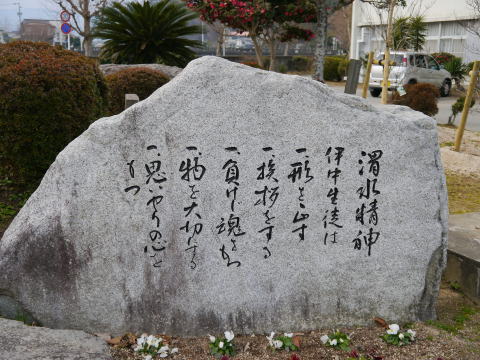 渭水精神
伊中生徒は
一、形を正す
一、挨拶をする
一、負けじ魂をもつ
一、物を大切にする
一、思いやりの心を
もつ